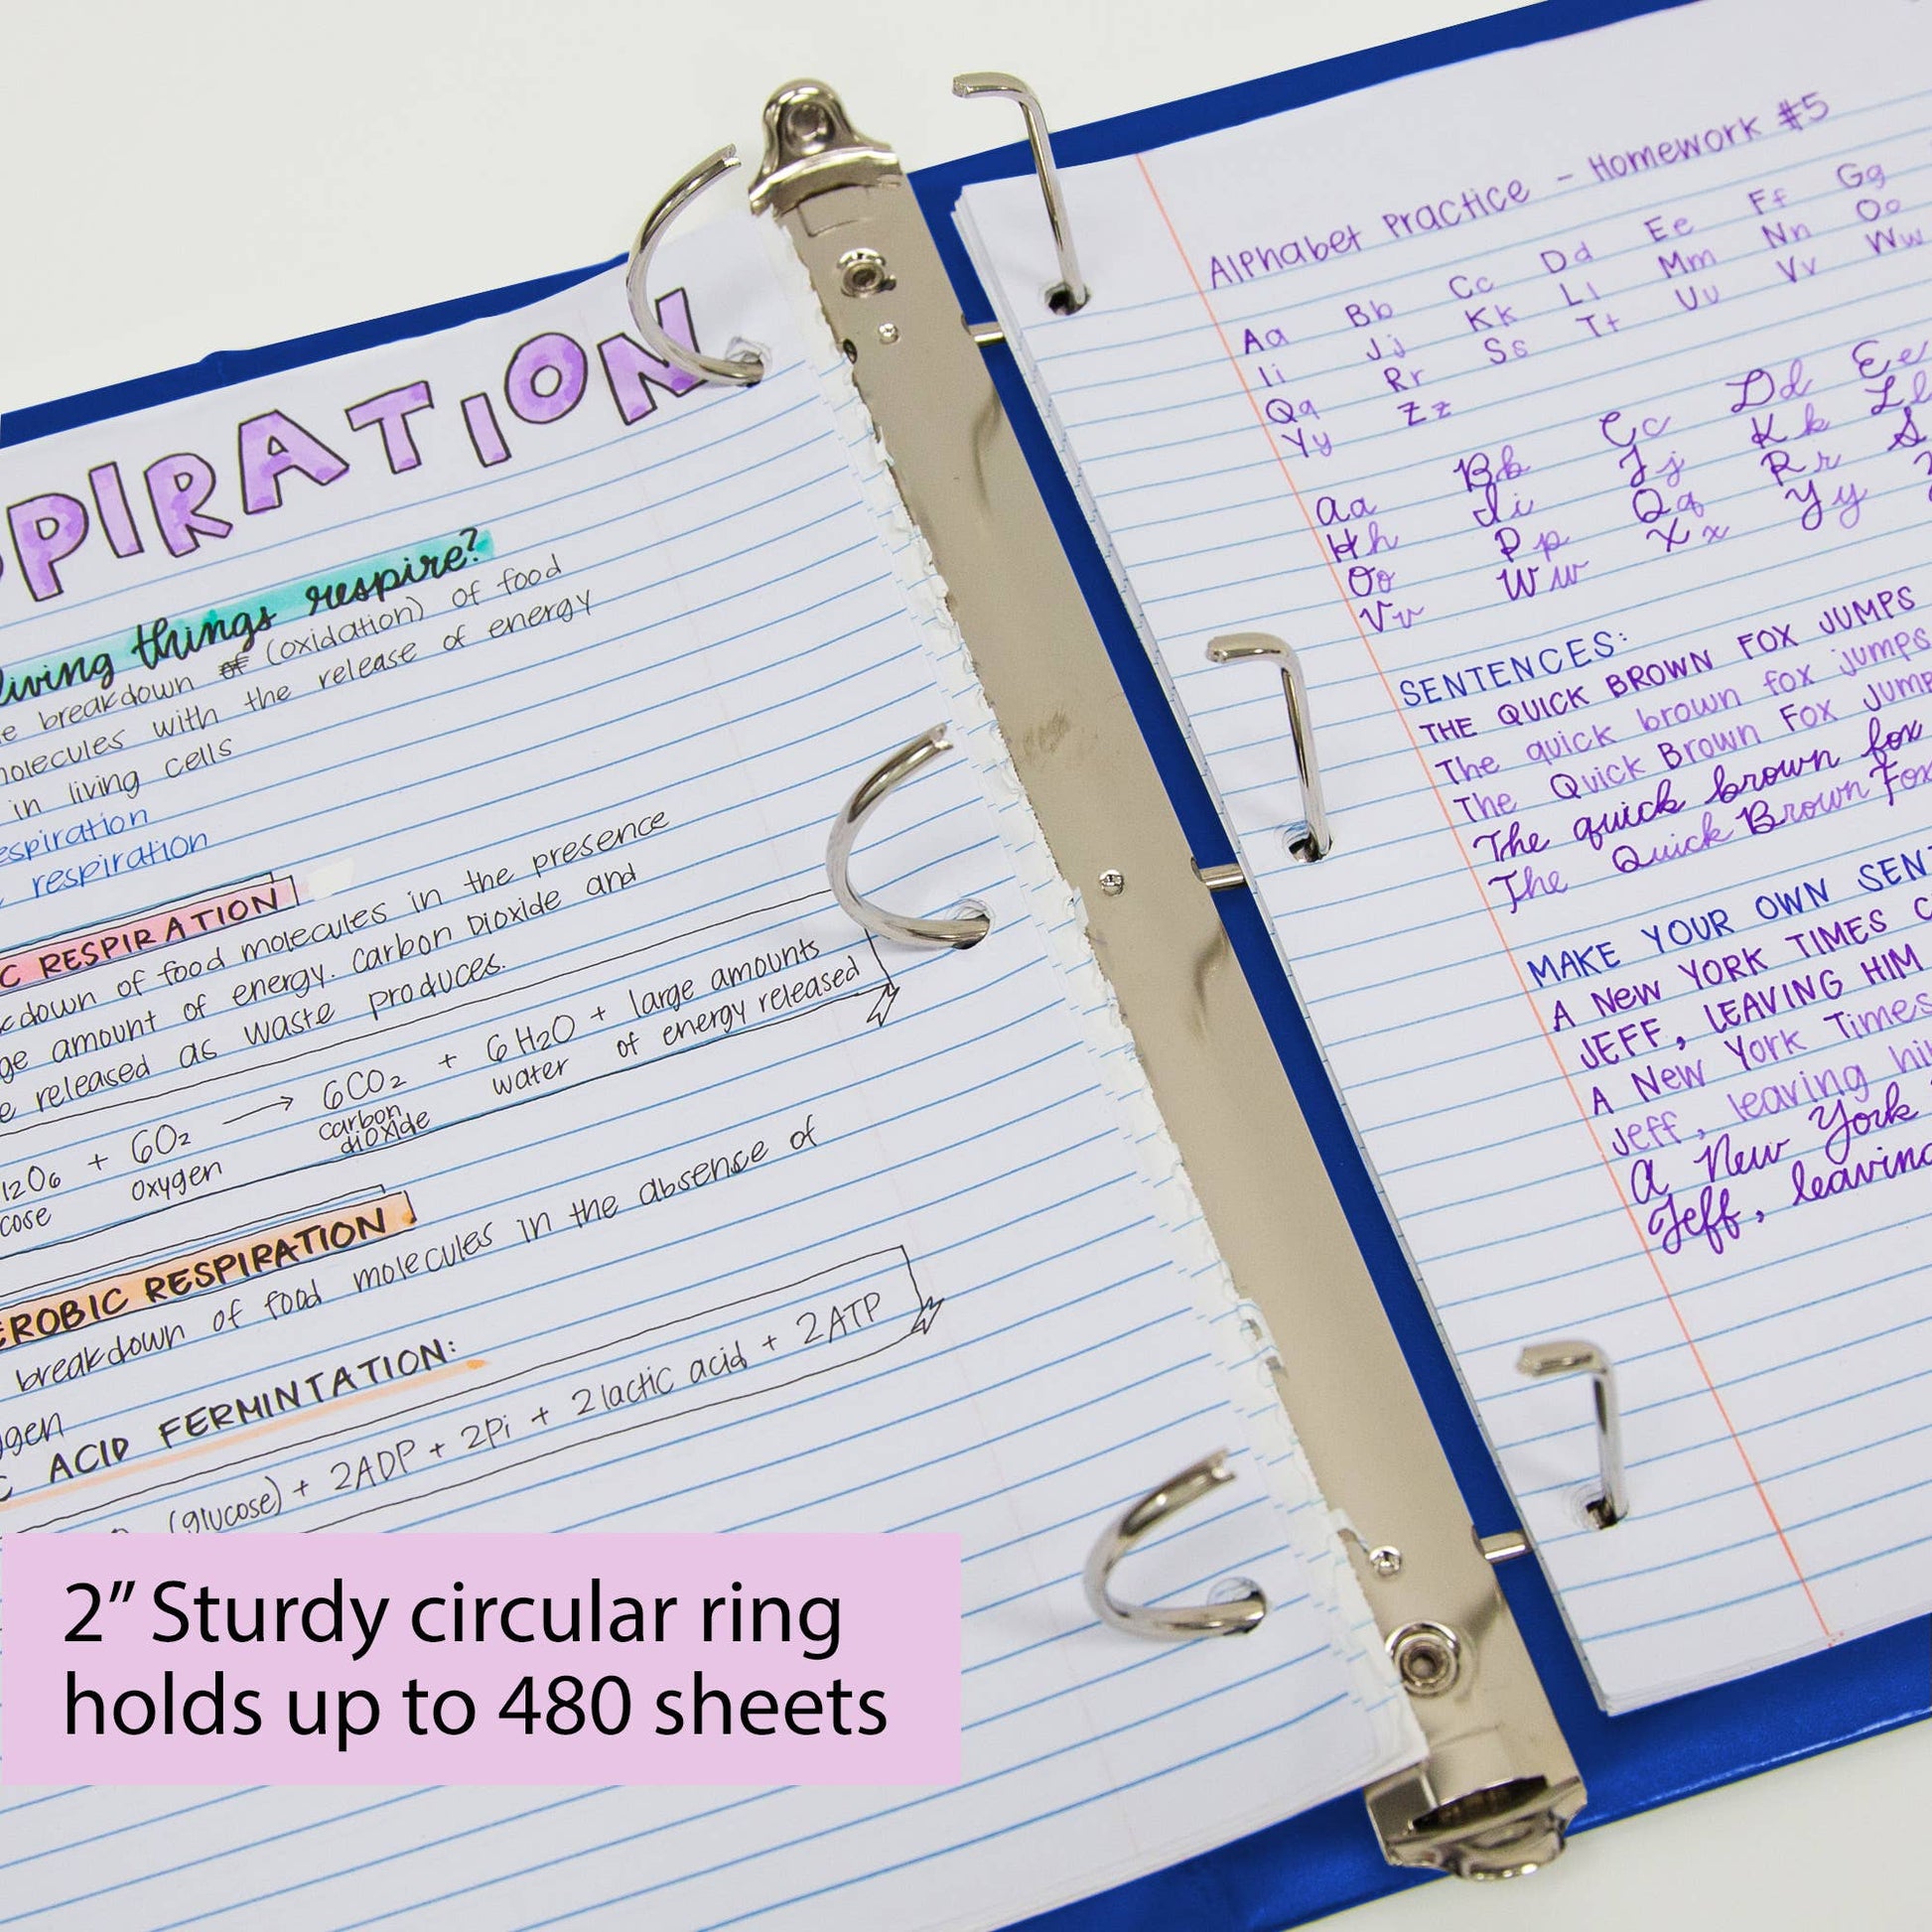 PIRATION
living things respire?
breakdown of (oxidation) of food
molecules with the release of energy
in living cells
espiration
respiration
C RESPIRATION
down of food molecules in the presence
ge amount of energy. Carbon Dioxide and
e released as waste produces.
12O6 + 6O2 → 6CO2 + 6H2O + large amounts
cose oxygen carbon dioxide water of energy released
EROBIC RESPIRATION
breakdown of food molecules in the absence of
gen
C ACID FERMINTATION:
(glucose) + 2ADP + 2Pi + 2 lactic acid + 2ATP
2” Sturdy circular ring
holds up to 480 sheets
Alphabet Practice - Homework #5
Aa Bb Cc Dd Ee Ff Gg
Ii Jj Kk Ll Mm Nn Oo
Qq Rr Ss Tt Uu Vv Ww
Yy Zz
Aa Bb Cc Dd Ee
Hh Ii Jj Kk Ll
Oo Pp Qq Rr S
Vv Ww Xx Yy
SENTENCES:
THE QUICK BROWN FOX JUMPS
The quick brown fox jumps
The Quick Brown Fox Jump
The quick brown fox
The Quick Brown Fox
MAKE YOUR OWN SENT
A NEW YORK TIMES C
JEFF, LEAVING HIM
A New York Times
Jeff, leaving hi
A New York
Jeff, leaving